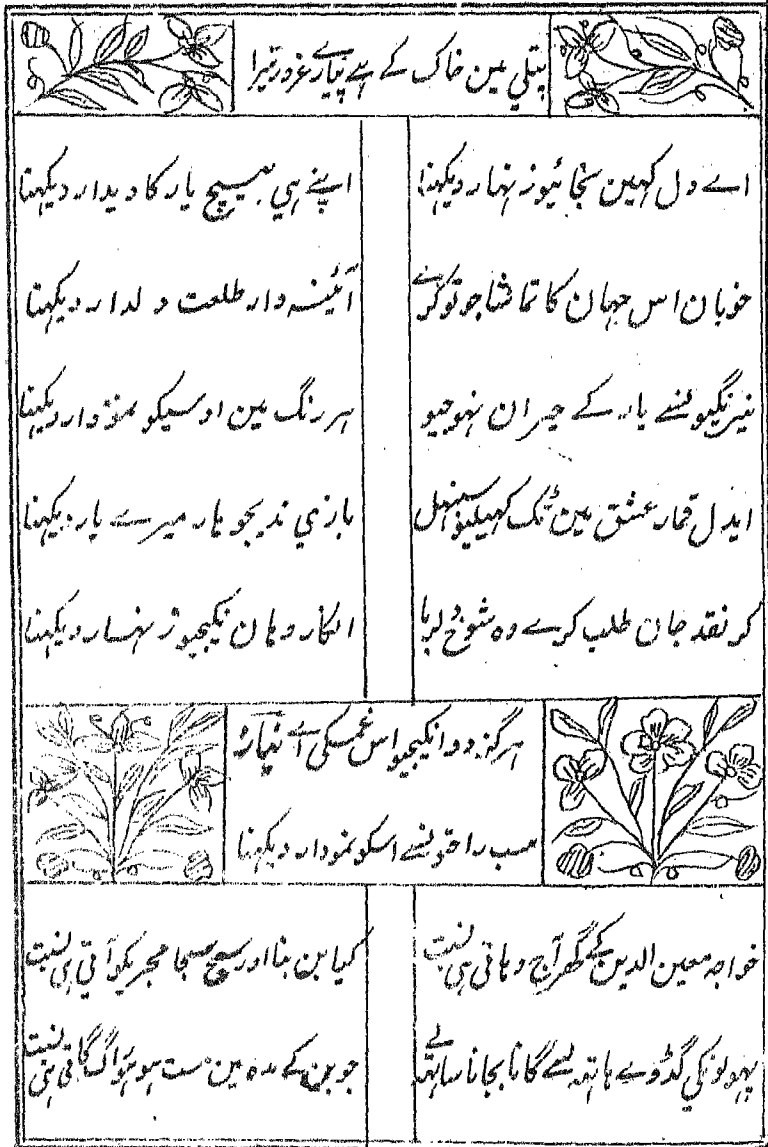 پتلي مين خاك کے اے پيارے غرور تيرا
اے دل کہين نجائيو زنہار ديکہنا اپنے ہي بيچ يار کا ديدار ديکہنا
خوبان اس جہان کا تماشا جو تو کرے آئينہ دار طلعت دلدار ديکہنا
نيرنگيونسے يار کے حيران نہوجيو ہر رنگ مين اوسيکو نمودار ديکہنا
ايدل قمار عشق مين ٹک کہيليو سنبہل بازي نديجو ہار ميرے يار ديکہنا
گر نقد جان طلب کرے وہ شوخ دلربا انکار وہان نکيجيو زنہار ديکہنا
ہرگز دوا نکيجيو اس غمکي اے نياز
سب راحتونسے اسکو نمودار ديکہنا
خواجہ معين الدين کے گہر آج دہاتي ہي بسنت کيا بن بنا اور سج سجا مجريکو آتي ہي بسنت
پہولونکي گڈوے ہاتہہ لے گانا بجانا ساتہہ لے جوبن کے مدہ مين مست ہو ہو راگ گاتي ہي بسنت